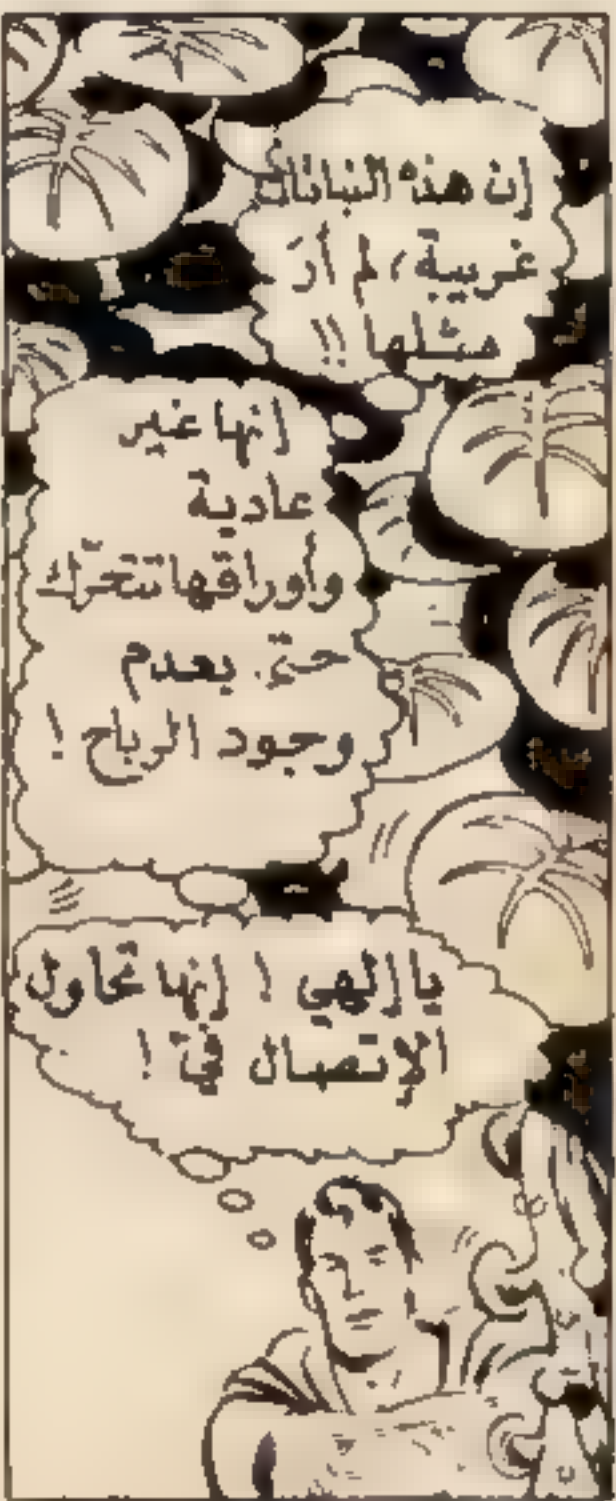 إن هذه النباتات
غريبة، لم أرَ
مثلها !!
إنها غير
عادية
وأوراقها تتحرّك
حتّى بعدم
وجود الرياح !
يا إلهي ! إنها تحاول
الإتصال بيّ !